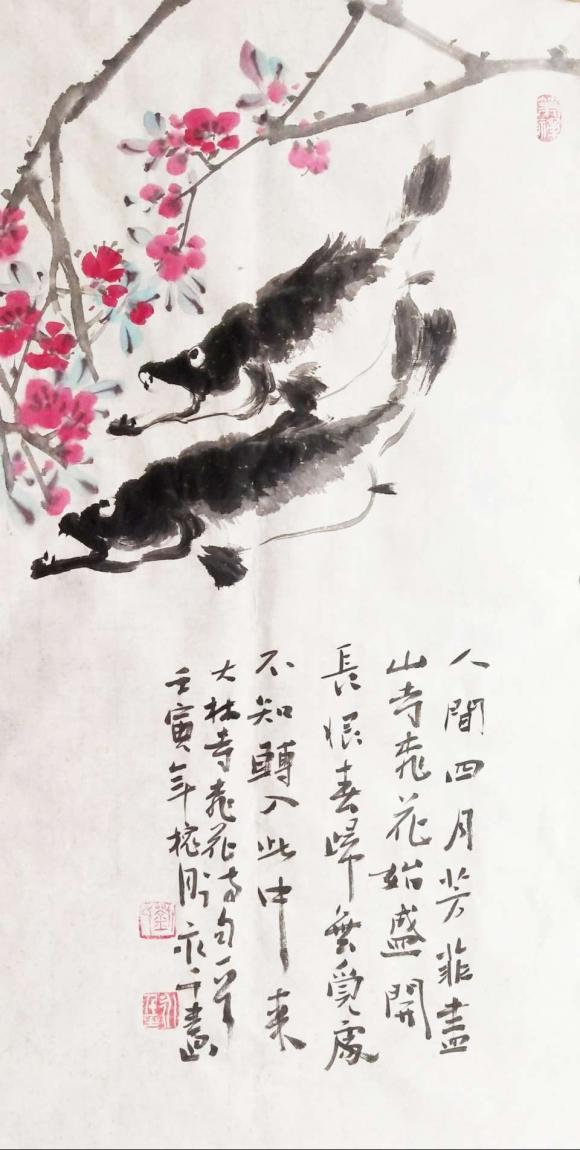 人間四月芳菲盡
山寺桃花始盛開
長恨春歸無覓處
不知轉入此中來
大林寺桃花诗句一首
壬寅年桃月永畫